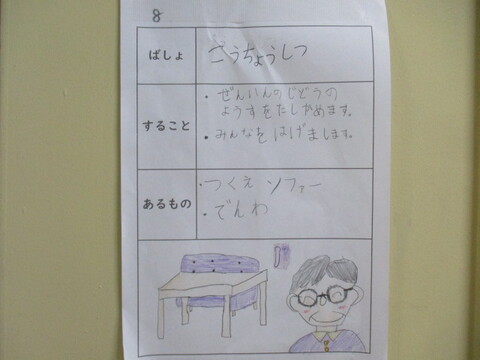 8
ばしょ
こうちょうしつ
すること
・ぜんいんのじどうの
ようすをたしかめます。
・みんなをはげまします。
あるもの
・つくえ ソファー
・でんわ